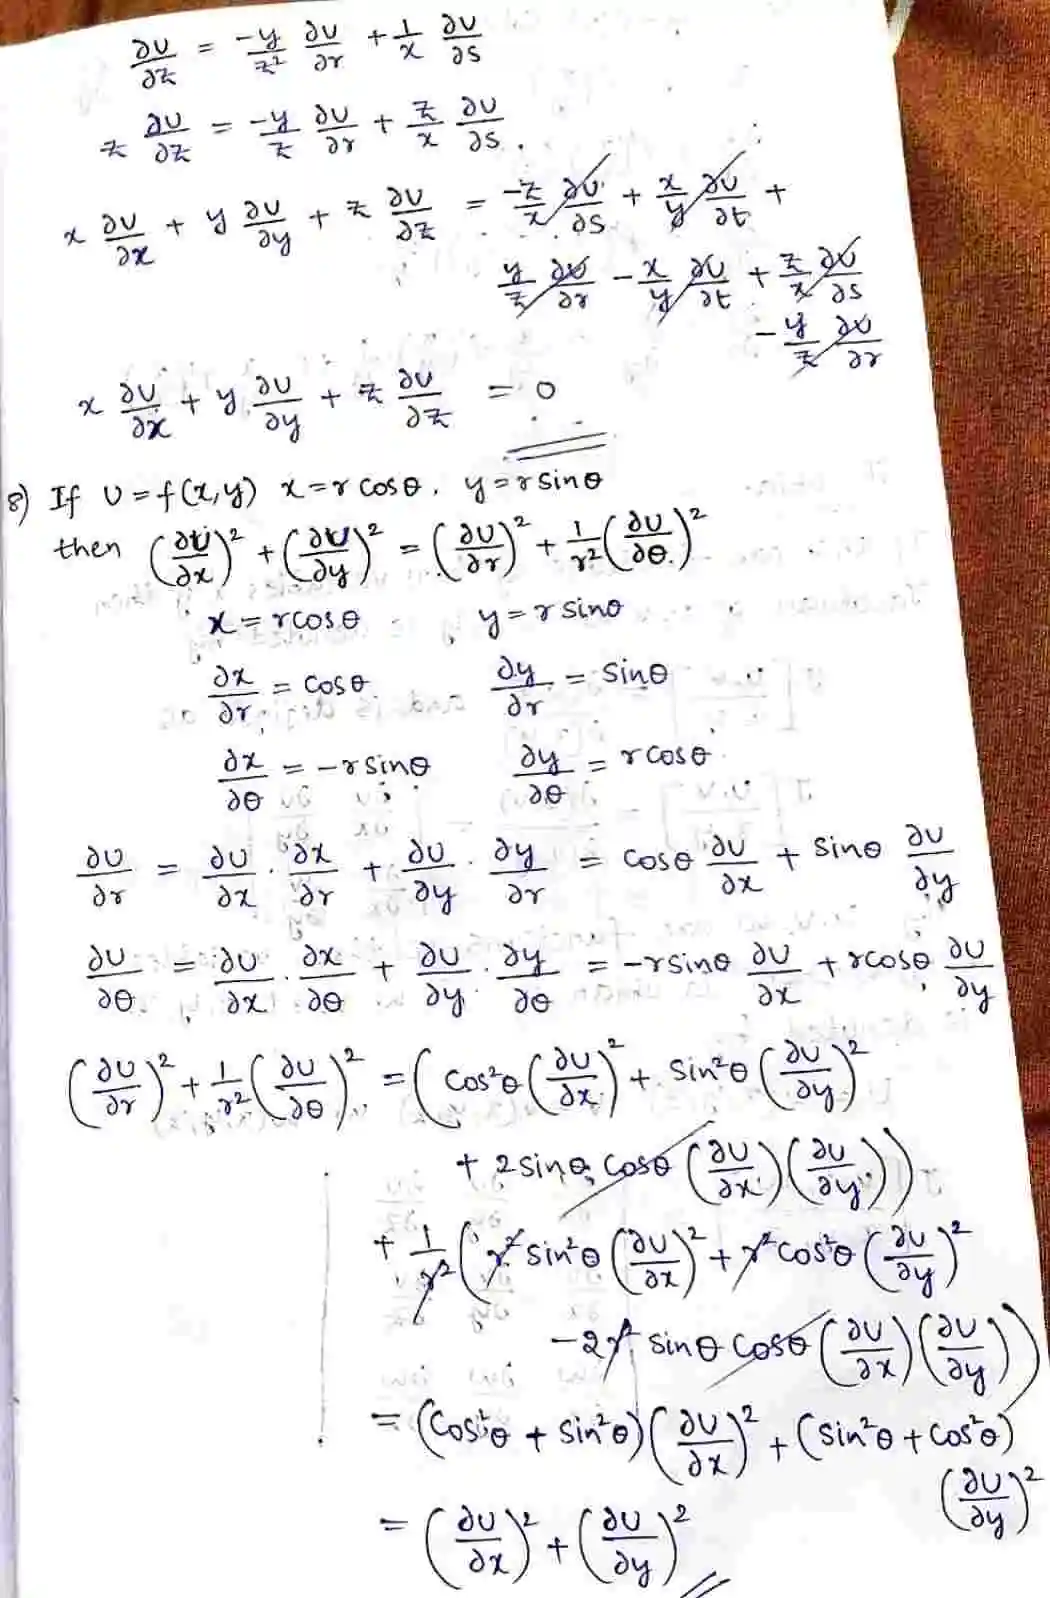 ∂U/∂z = -y/z² ∂U/∂r + 1/x ∂U/∂s
z ∂U/∂z = -y/z ∂U/∂r + z/x ∂U/∂s.
x ∂U/∂x + y ∂U/∂y + z ∂U/∂z = -z/x ∂U/∂s + x/y ∂U/∂t +
y/z ∂U/∂r - x/y ∂U/∂t + z/x ∂U/∂s
- y/z ∂U/∂r
x ∂U/∂x + y ∂U/∂y + z ∂U/∂z = 0
8) If U = f(x,y) x = r cosθ, y = r sinθ
then (∂U/∂x)² + (∂U/∂y)² = (∂U/∂r)² + 1/r² (∂U/∂θ)²
x = r cosθ, y = r sinθ
∂x/∂r = cosθ ∂y/∂r = sinθ
∂x/∂θ = -r sinθ ∂y/∂θ = r cosθ
∂U/∂r = ∂U/∂x . ∂x/∂r + ∂U/∂y . ∂y/∂r = cosθ ∂U/∂x + sinθ ∂U/∂y
∂U/∂θ = ∂U/∂x . ∂x/∂θ + ∂U/∂y . ∂y/∂θ = -r sinθ ∂U/∂x + r cosθ ∂U/∂y
(∂U/∂r)² + 1/r² (∂U/∂θ)² = (cos²θ (∂U/∂x)² + sin²θ (∂U/∂y)²
+ 2 sinθ cosθ (∂U/∂x)(∂U/∂y))
+ 1/r² (r² sin²θ (∂U/∂x)² + r² cos²θ (∂U/∂y)²
- 2r² sinθ cosθ (∂U/∂x)(∂U/∂y))
= (cos²θ + sin²θ)(∂U/∂x)² + (sin²θ + cos²θ)
(∂U/∂y)²
= (∂U/∂x)² + (∂U/∂y)²